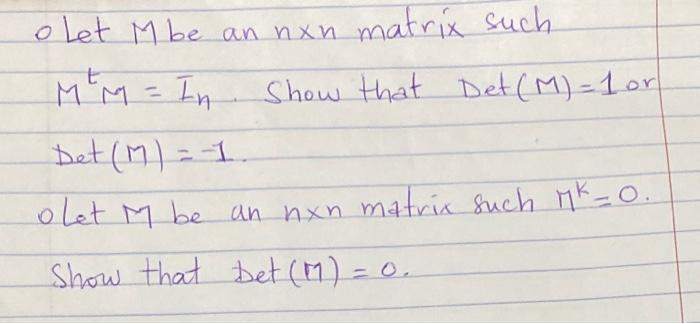 o Let M be an nxn matrix such
MᵗM = Iₙ. Show that Det(M)=1 or
Det(M) = -1.
o Let M be an nxn matrix such Mᴷ=0.
Show that Det(M) = 0.